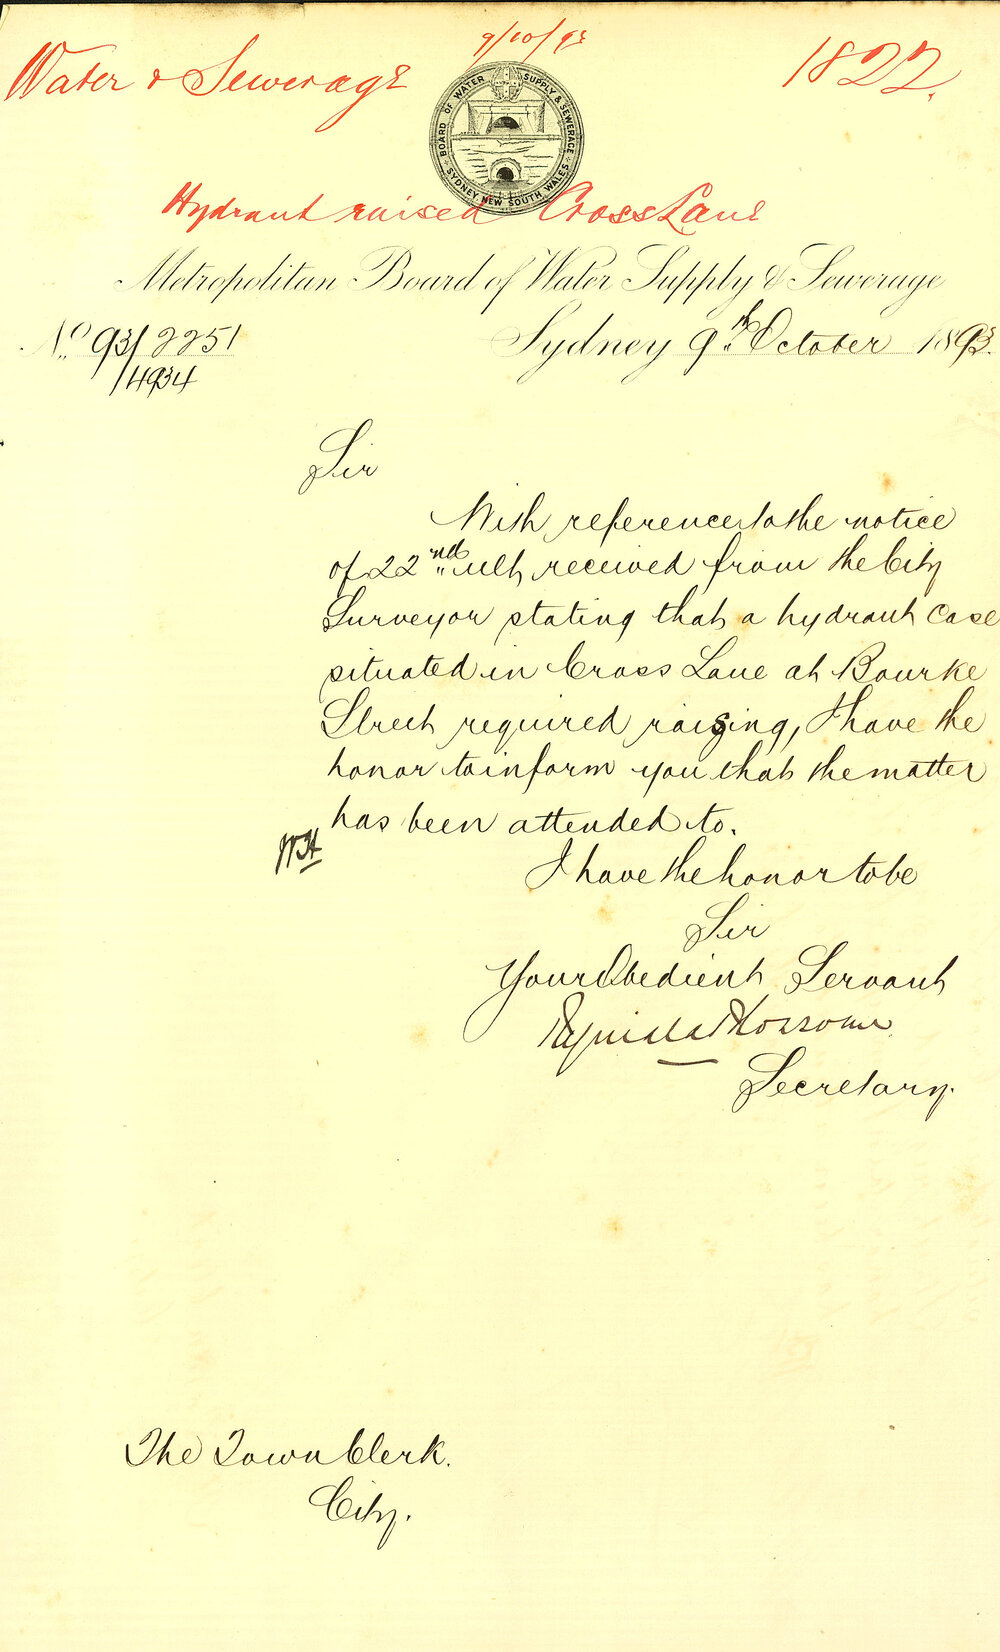 9/10/93
Water & Sewerage
1822.
BOARD OF WATER SUPPLY & SEWERAGE
SYDNEY, NEW SOUTH WALES
Hydrant raised Cross Lane
Metropolitan Board of Water Supply & Sewerage
No. 93/2251
/4934
Sydney 9th October 1893.
Sir
With reference to the notice
of 22nd ult, received from the City
Surveyor stating that a hydrant case
situated in Cross Lane at Bourke
Street required raising, I have the
honor to inform you that the matter
has been attended to.
WH
I have the honor to be
Sir
Your Obedient Servant
Secretary.
The Town Clerk.
City.